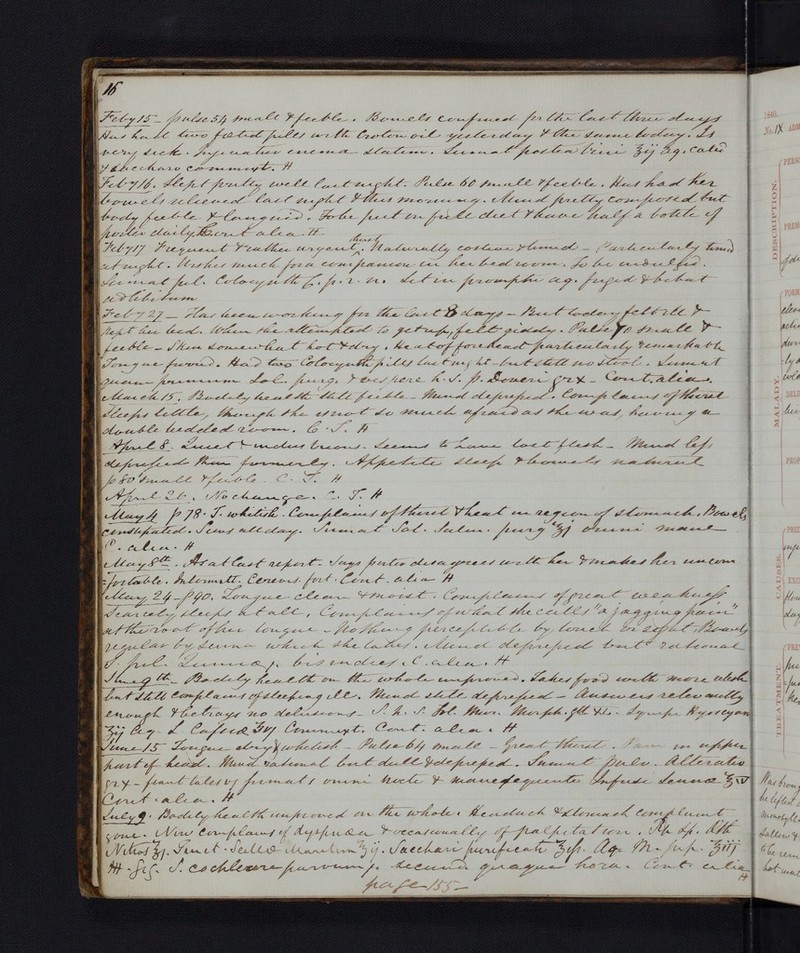 16
Feby 15 – pulse 54 small & feeble. Bowels confined for the last three days
Has had two foetid pills with Croton oil yesterday & the same today. Is
very sick. enema statim. Sumat postea Vini ʒij aq. calid
& saccharo commixt. H
Feb 16. Slept pretty well last night. Pulse 60 small & feeble. Has had her
bowels relieved last night & this morning. Mind pretty composed but
body feeble & languid. To be put on full diet & have half a bottle of
porter daily. Cont alia. H
thirst
Feby 17 Frequent & rather urgent, Naturally costive & timid – Particularly timid
at night. Wishes much for a companion in her bedroom. To be indulged.
Sumat pil. Colocynth C. p. r. n. Sit in promptu aq. frigid & bibat
ad libitum
Feb 27 – Has been working for the last 8 days – But today felt ill &
kept her bed. When she attempted to get up, felt giddy. Pulse 70 small &
feeble – Skin somewhat hot & dry. Heat of forehead particularly remarkable
Tongue furred. Had two Colocynth pills last night – but still no stool. Sumat
quam primum Sol. purg. & vespere h. s. p. Doveri gr x – Cont. alia.
March 15. Bodily health still feeble – Mind depressed. Complains of thirst
Sleeps little, though she is not so much afraid as she was, having a
double bedded room. C. T. H
April 8. Quiet & industrious. Seems to have lost flesh – Mind less
depressed than formerly. Appetite sleep & bowels natural
p 80 small & feeble. C. T. H
April 26. No change. C. T. H
May 4 p 78. T. whitish. Complains of thirst & heat in region of stomach. Bowels
constipated. Sews all day. Sumat Sal. purg ʒj omni mane
C. alia. H
May 8th. As at last report. Says porter disagrees with her & makes her uncom
=fortable. Intermitt. Cerevis fort. Cont. alia H
May 24 – p 90. Tongue clean & moist. Complains of great weakness
Scarcely sleeps at all, Complains of what she calls "a jagging pain"
at the root of her tongue – Nothing perceptible by touch or sight. Bowels
regular by Senna which she takes. Mind depressed but rational
S. pil. bis indies. C. alia. H
June 9th – Bodily health on the whole improved. Takes food with more relish
but still complains of sleeping ill. Mind still depressed – Answers relevantly
enough & betrays no delusions – S. h. S. Sol. Mur. Morph. Syrupi Hyoscyam
ʒij Aq. Cassiæ ʒvj Commixt. Cont. alia. H
June 15 Tongue dry & whitish – Pulse 64 small – Great thirst. Pain in upper
part of head. Mind rational but dull & depressed. Sumat pulv. Alterativ
gr x – omni nocte & mane sequente Infusi Sennæ ʒiv
Cont. alia. H
July 9. Bodily health improved on the whole. Headach & stomach complaint
gone. Now complains of dyspnœa & occasionally of palpitation. Rp Sp. Æth
Nitros ʒj. Tinct. Scillæ ʒij. Sacchari purificati ʒss. Aq. ʒiij
M. S. cochleare parvum j. secunda quaque hora. Cont. alia
H
page 155 –
1840.
No. IX
DESCRIPTION.
MALADY.
CAUSES.
TREATMENT.